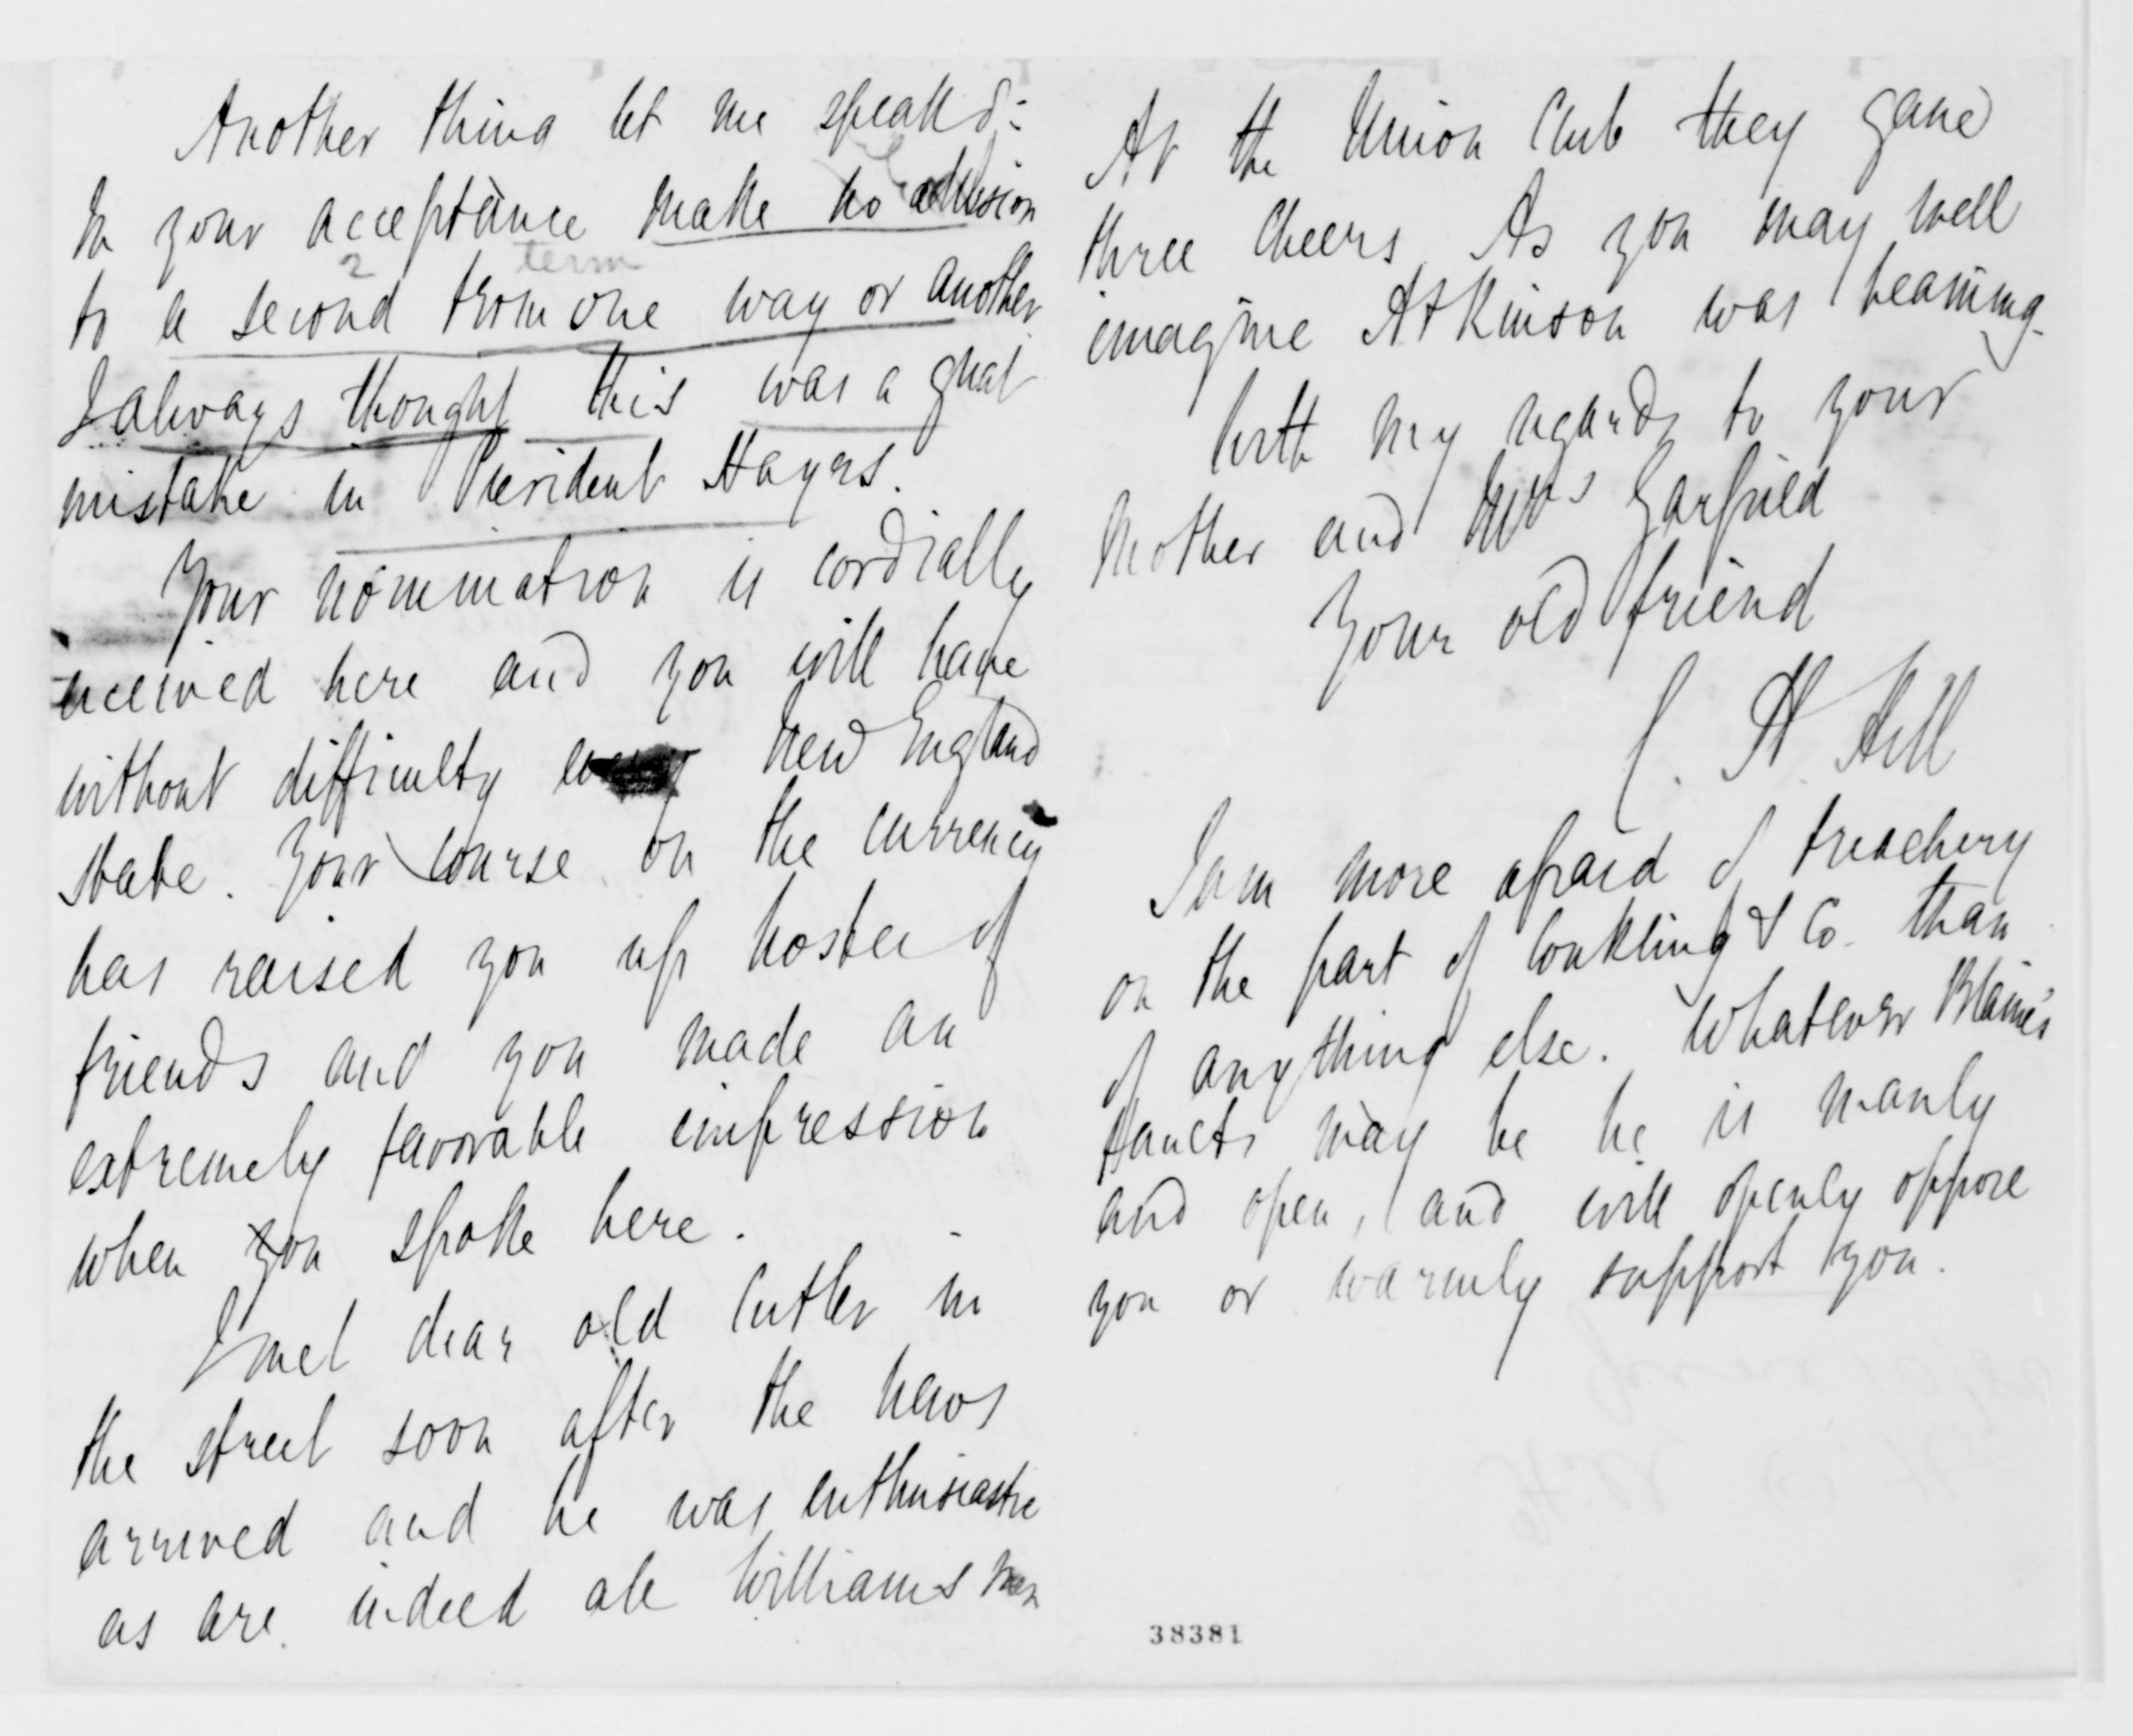 Another thing let me speak of:
In your acceptance make no allusion
to a second term one way or another
2 term
I always thought this was a great
mistake in President Hayes.
Your nomination is cordially
received here and you will have
without difficulty every New England
state. Your course on the currency
has raised you up hosts of
friends and you made an
extremely favorable impression
when you spoke here.
I met dear old Cutler in
the street soon after the news
arrived and he was enthusiastic
as are indeed all Williams men
At the Union Club they gave
three cheers. As you may well
imagine Atkinson was beaming.
With my regards to your
Mother and Mrs Garfield
Your old friend
C. H. Hill
I am more afraid of treachery
on the part of Conkling & Co. than
of anything else. Whatever Blaine's
faults may be he is manly
and open, and will openly oppose
you or warmly support you.
38381